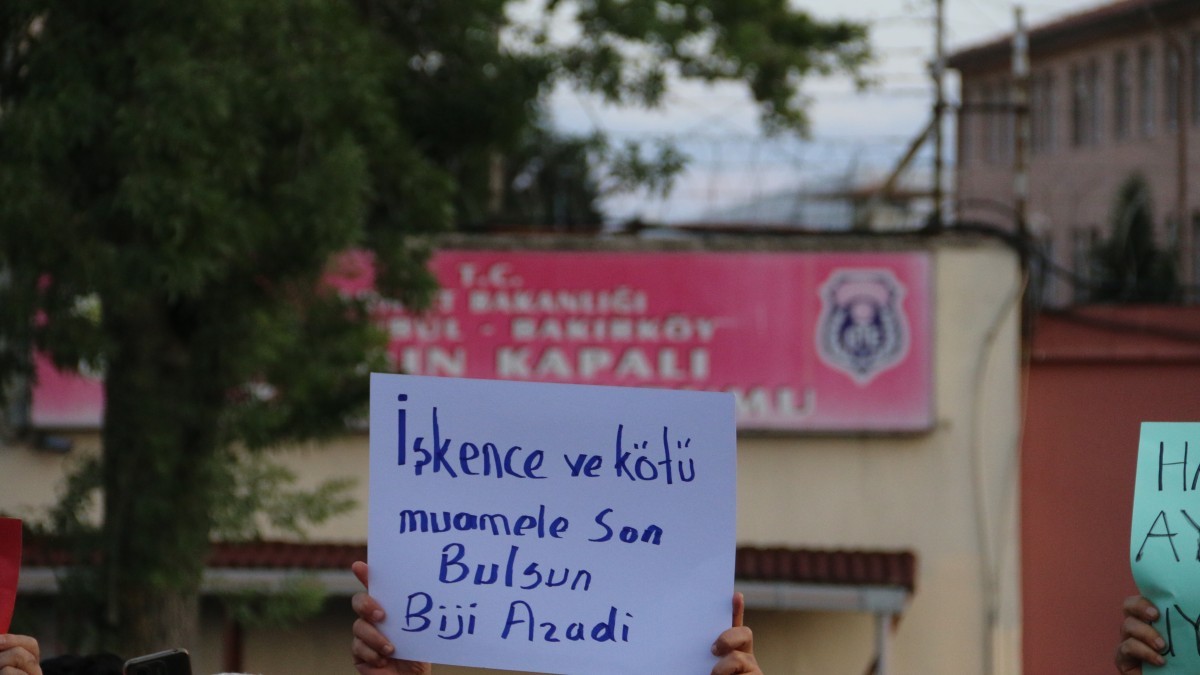 T.C.
BAKANLIĞI
BUL - BAKIRKÖY
KAPALI
İşkence ve kötü
muamele Son
Bulsun
Biji Azadi
HA
AY
UY